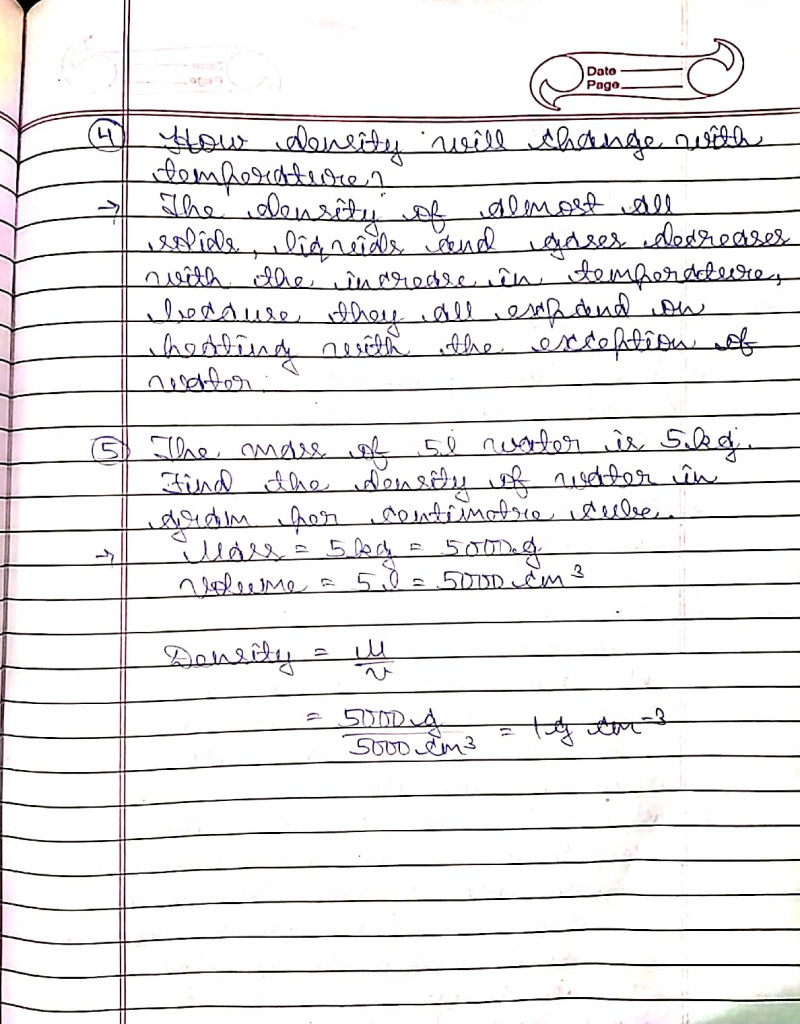 Date
Page
④ How density will change with
temperature?
→ The density of almost all
solids, liquids and gases decreases
with the increase in temperature,
because they all expand on
heating with the exception of
water.
⑤ The mass of 5l water is 5kg.
Find the density of water in
gram per centimetre cube.
→ Mass = 5kg = 5000g
Volume = 5l = 5000 cm³
Density = M/V
= 5000 g/5000 cm³ = 1g cm⁻³